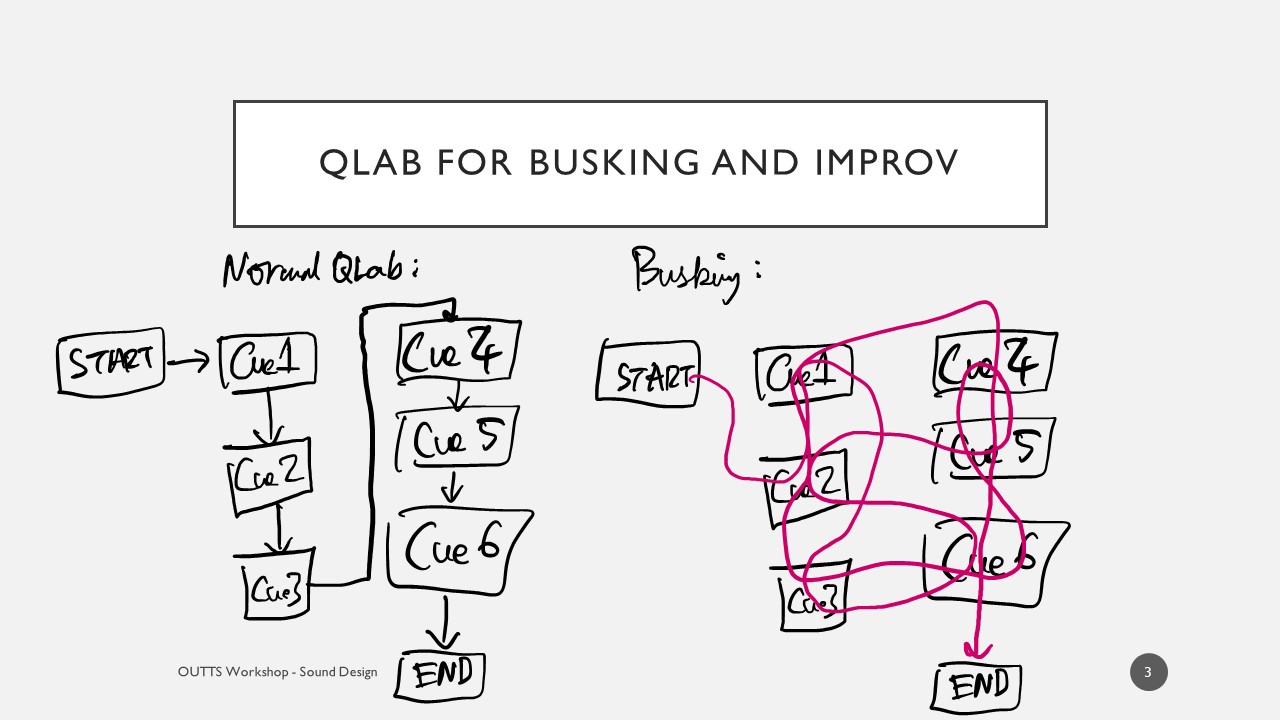 QLAB FOR BUSKING AND IMPROV
Normal QLab:
START
Cue 1
Cue 2
Cue 3
Cue 4
Cue 5
Cue 6
END
Busking:
START
Cue 1
Cue 2
Cue 3
Cue 4
Cue 5
Cue 6
END
OUTTS Workshop - Sound Design
3